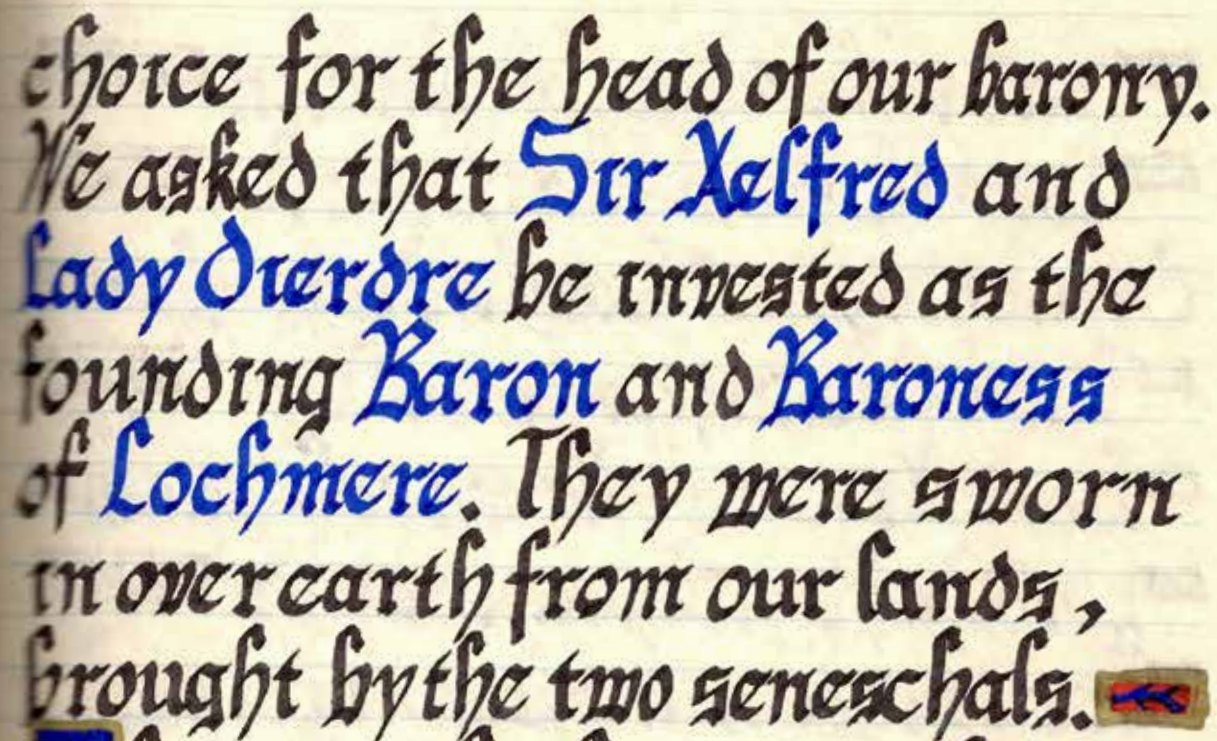 choice for the head of our barony.
We asked that Sir Aelfred and
Lady Dierdre be invested as the
founding Baron and Baroness
of Lochmere. They were sworn
in over earth from our lands,
brought by the two seneschals.